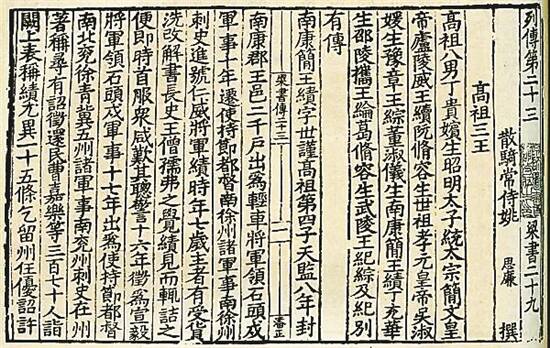 列傳第二十三 梁書二十九
散騎常侍姚 思廉 撰
高祖三王
高祖八男丁貴嬪生昭明太子統太宗簡文皇
帝廬陵威王續阮脩容生世祖孝元皇帝吳淑
媛生豫章王綜董淑儀生南康簡王績丁充華
生邵陵攜王綸葛脩容生武陵王紀綜及紀別
有傳
南康簡王績字世謹高祖第四子天監八年封
梁書傳二十三 一 潘正
南康郡王邑二千戶出爲輕車將軍領石頭戍
軍事十年遷使持節都督南徐州諸軍事南徐州
刺史進號仁威將軍績時年七歲主者有受貨
洗改解書長史王僧孺弗之覺績見而輒詰之
便即時首服衆咸歎其聰警十六年徵爲宣毅
將軍領石頭戍軍事十七年出爲使持節都督
南北兗徐青冀五州諸軍事南兗州刺史在州
著稱尋有詔徵還民曹嘉樂等三百七十人詣
闕上表稱績尤異一十五條乞留州任優詔許